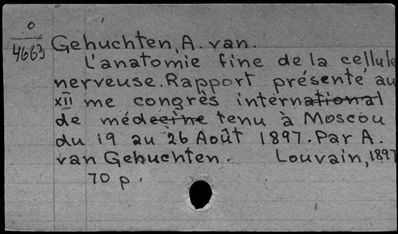 0
4663
Gehuchten, A. van.
L'anatomie fine de la cellule
nerveuse. Rapport présenté au
XII me congrès international
de médecine tenu à Moscou
du 19 au 26 Août 1897. Par A.
van Gehuchten. Louvain, 1897
70 p.